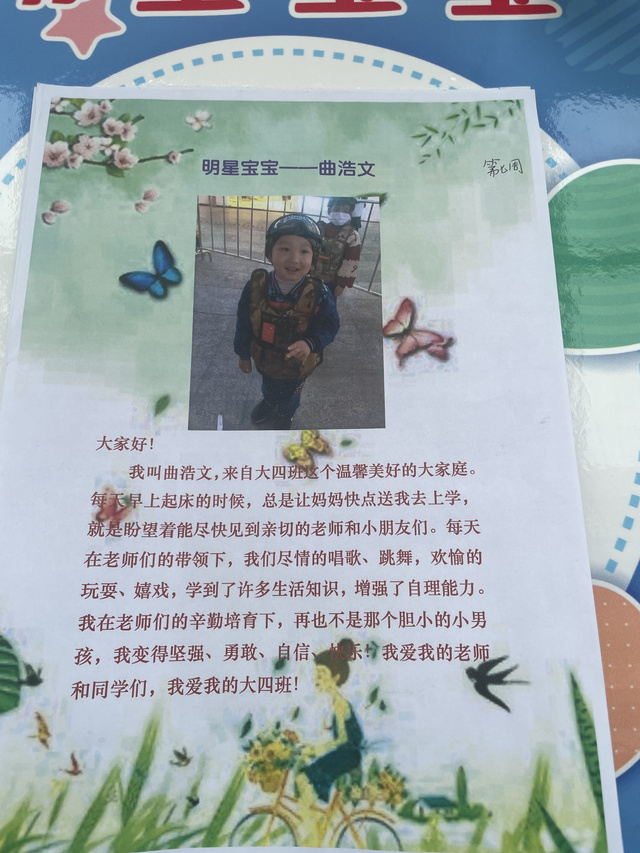 宝宝
明星宝宝——曲浩文
大家好！
我叫曲浩文，来自大四班这个温馨美好的大家庭。
每天早上起床的时候，总是让妈妈快点送我去上学，
就是盼望着能尽快见到亲切的老师和小朋友们。每天
在老师们的带领下，我们尽情的唱歌、跳舞，欢愉的
玩耍、嬉戏，学到了许多生活知识，增强了自理能力。
我在老师们的辛勤培育下，再也不是那个胆小的小男
孩，我变得坚强、勇敢、自信、快乐！我爱我的老师
和同学们，我爱我的大四班！